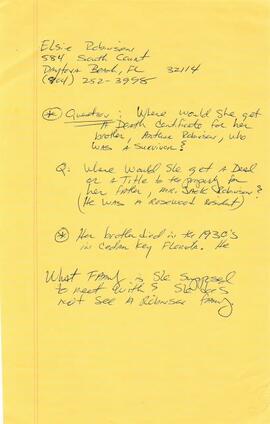 Elsie Robinson
584 South Court
Daytona Beach, FL 32114
(904) 252-3998
* Question: Where would she get
A Death Certificate for her
brother, Arthur Robinson, who
was a Survivor?
Q: Where would she get a Deed
or a Title to the property for
her father, Mr. Jack Robinson?
(He was a Rosewood Resident)
* Her brother died in the 1930's
in Cedar Key Florida. He
What Family is she supposed
to meet with? She does
not see a Robinson Family